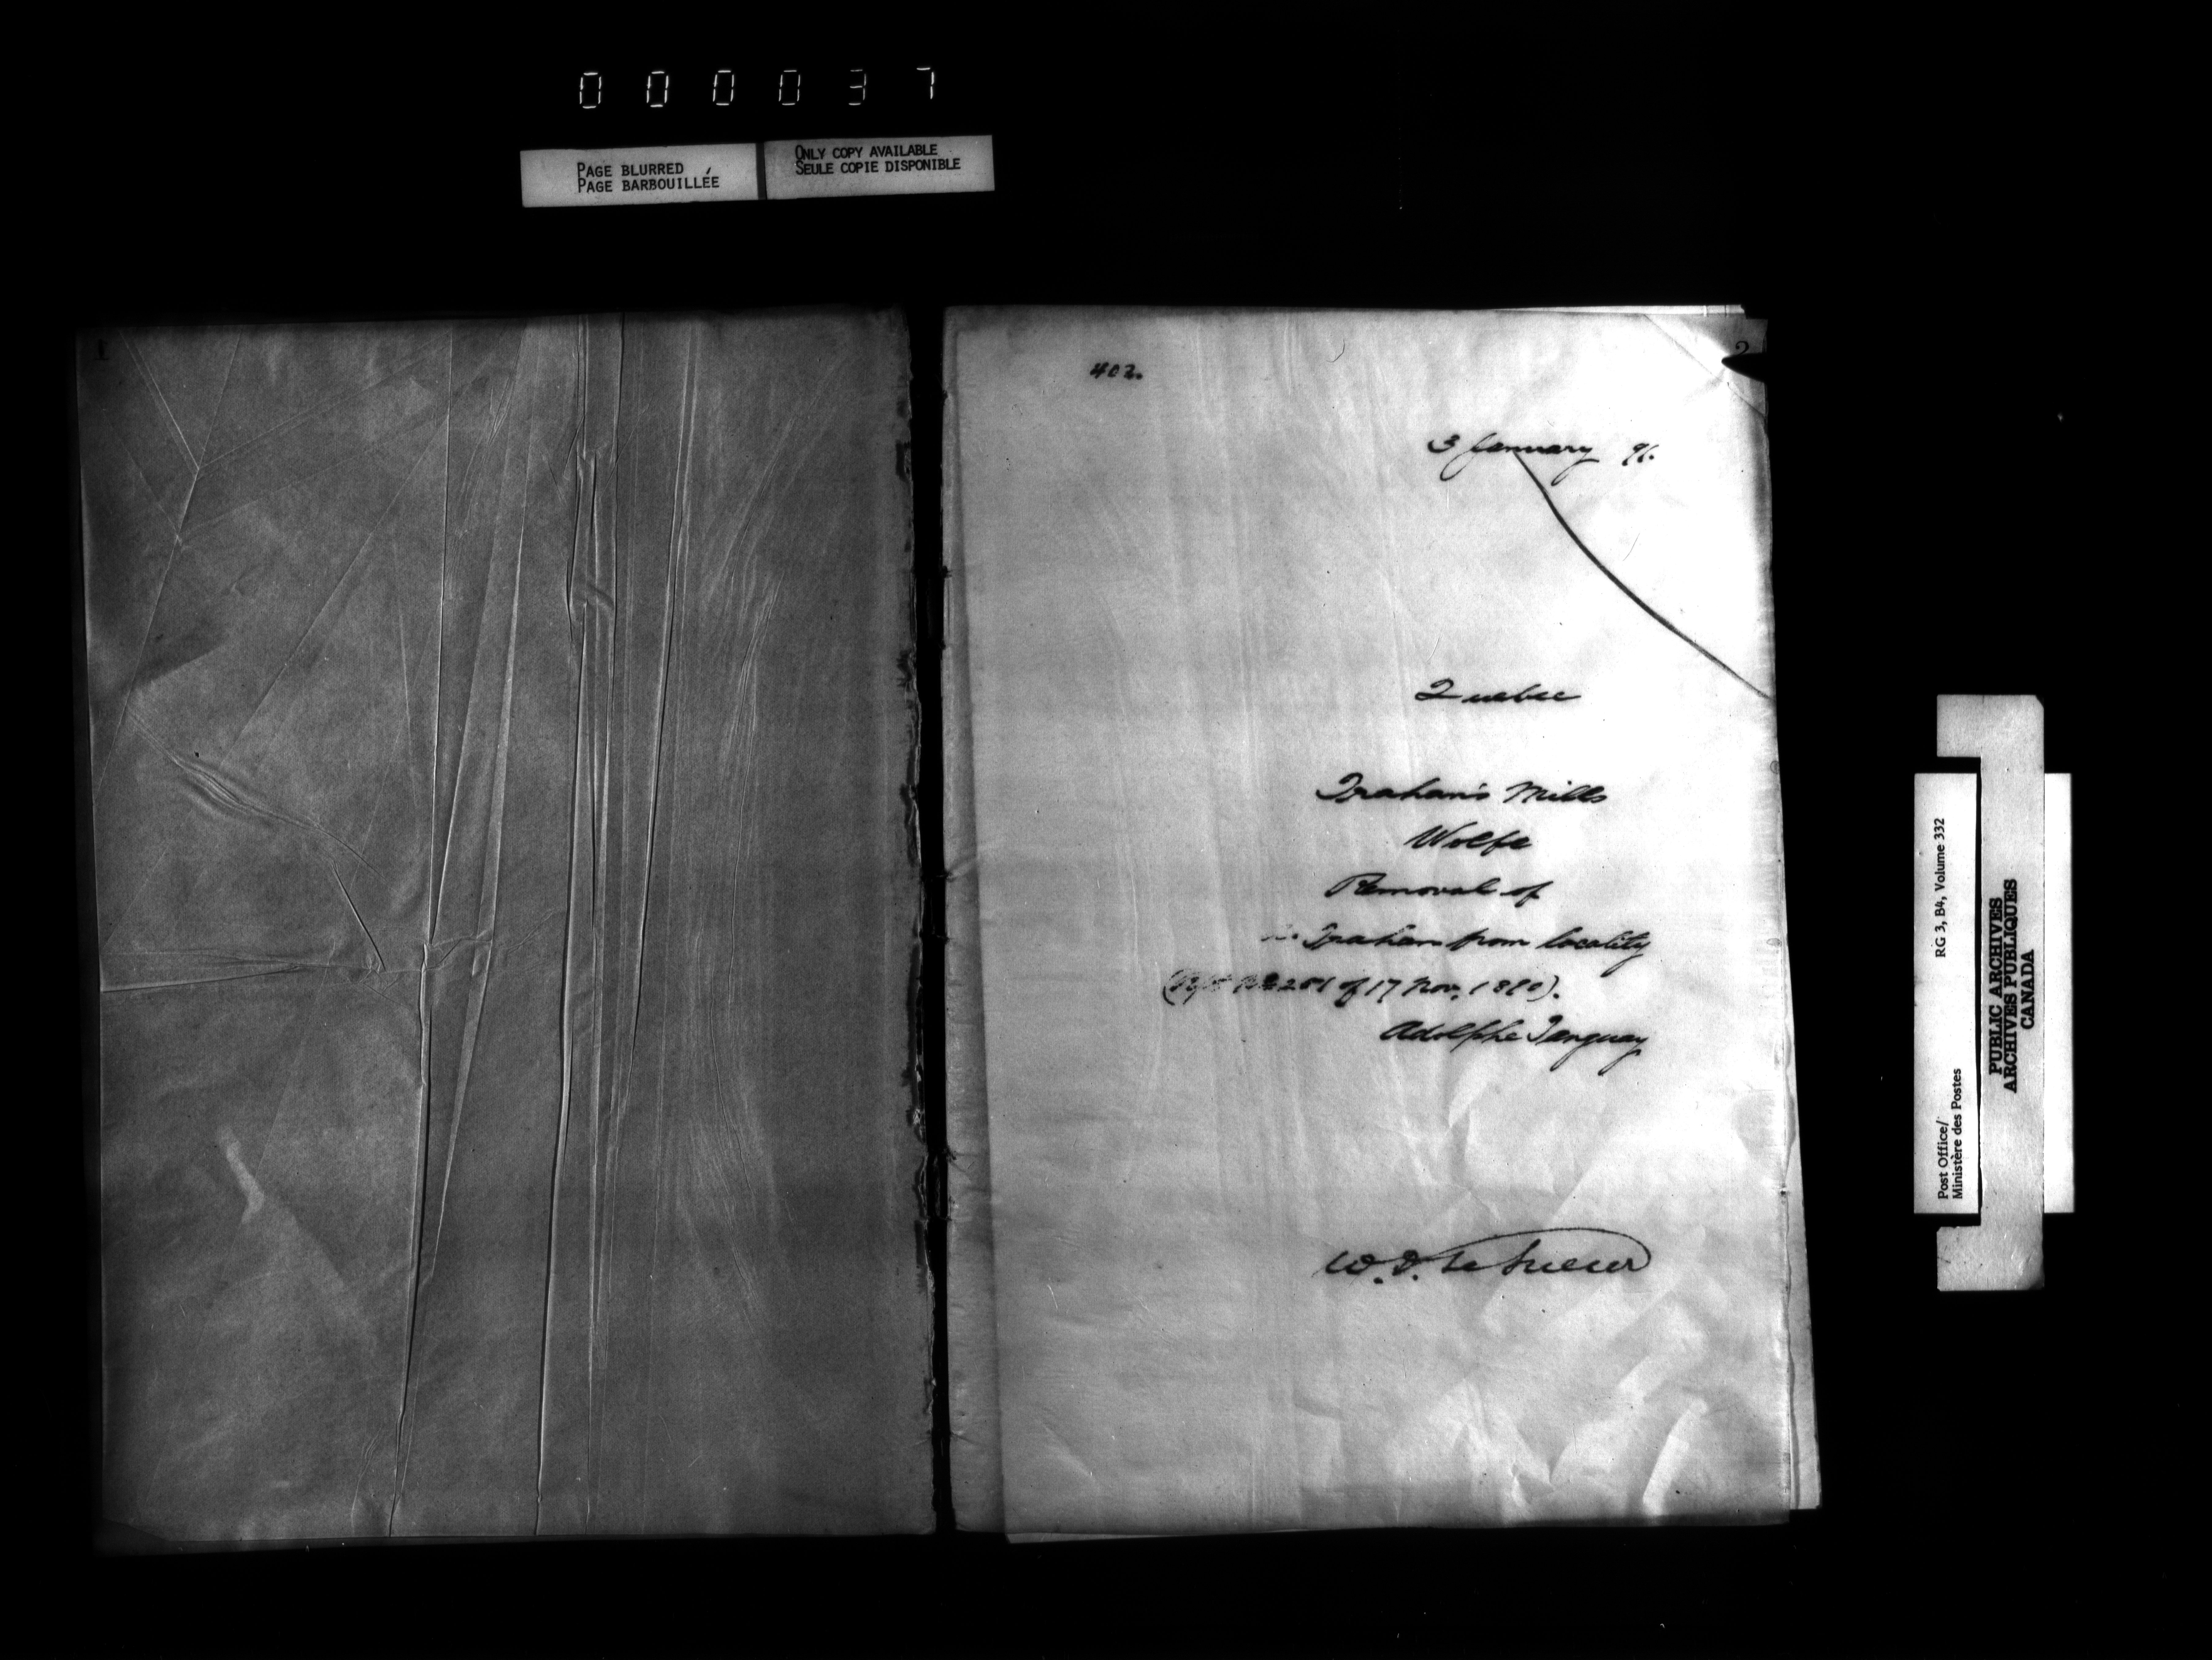 000037
PAGE BLURRED
PAGE BARBOUILLÉE
ONLY COPY AVAILABLE
SEULE COPIE DISPONIBLE
1
2
402.
3 January 91.
Quebec
Graham's Mills
Wolfe
Removal of
Graham from locality
of 17 Nov. 1890).
Adolphe Tanguay
W. D. Le Sueur
Post Office/
Ministère des Postes
RG 3, B4, Volume 332
PUBLIC ARCHIVES
ARCHIVES PUBLIQUES
CANADA